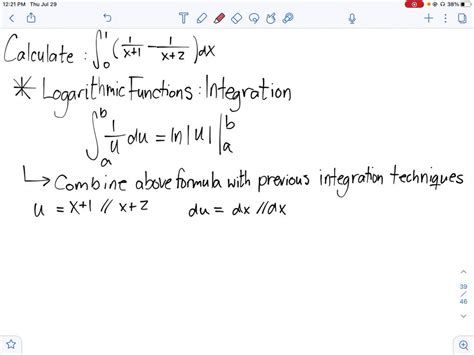 12:21 PM Thu Jul 29 38%
Calculate : ∫₀¹ (1/(x+1) - 1/(x+2)) dx
* Logarithmic Functions: Integration
∫ₐᵇ 1/u du = ln|u| |ₐᵇ
↳ Combine above formula with previous integration techniques
u = x+1 // x+2 du = dx // dx
39
/
46